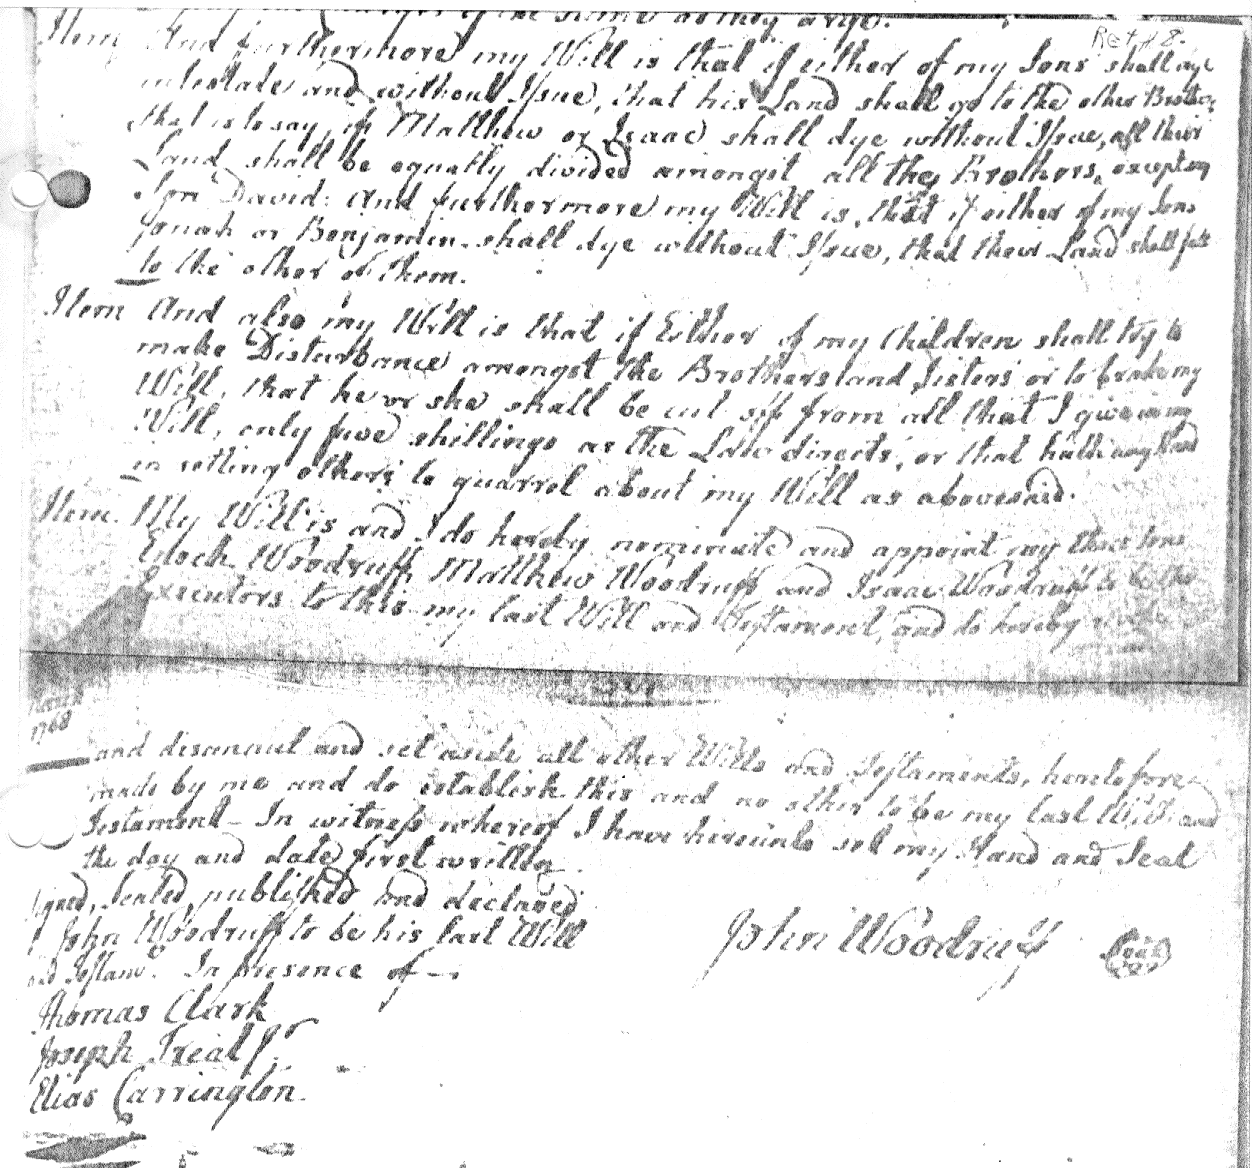 of the same as they arise.
Ret #8.
Item And furthermore my Will is that if either of my Sons shall dye
intestate and without Issue, that his Land shall go to the other Brother,
that is to say, if Matthew or Isaac shall dye without Issue, all their
Land shall be equally divided amongst all the Brothers, excepting
Son David: And furthermore my Will is, that if either of my Sons
Jonah or Benjamin shall dye without Issue, that their Land shall fall
to the other of them.
Item And also my Will is that if Either of my Children shall try to
make Disturbance amongst the Brothers and Sisters or to brake my
Will, that he or she shall be cut off from all that I give in my
Will, only five shillings as the Law directs, or that hath any hand
in setting others to quarrel about my Will as abovesaid.
Item. My Will is and I do hereby nominate and appoint my three Sons
Enoch Woodruff, Matthew Woodruff and Isaac Woodruff to be the
Executors to this my last Will and Testament, and do hereby
1768
and disannul and set aside all other Wills and Testaments, heretofore
made by me and do establish this and no other to be my last Will and
Testament - In witness whereof I have hereunto set my Hand and Seal
the day and date first written.
Signed, Sealed, published and declared
John Woodruff to be his last Will
Testamt. In presence of -
John Woodruff Seal
Thomas Clark
Joseph Treat Jr
Elias Carrington.